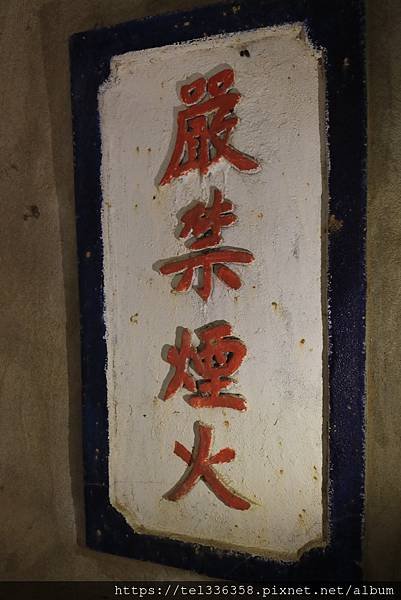 嚴禁煙火
https://tel336358.pixnet.net/album